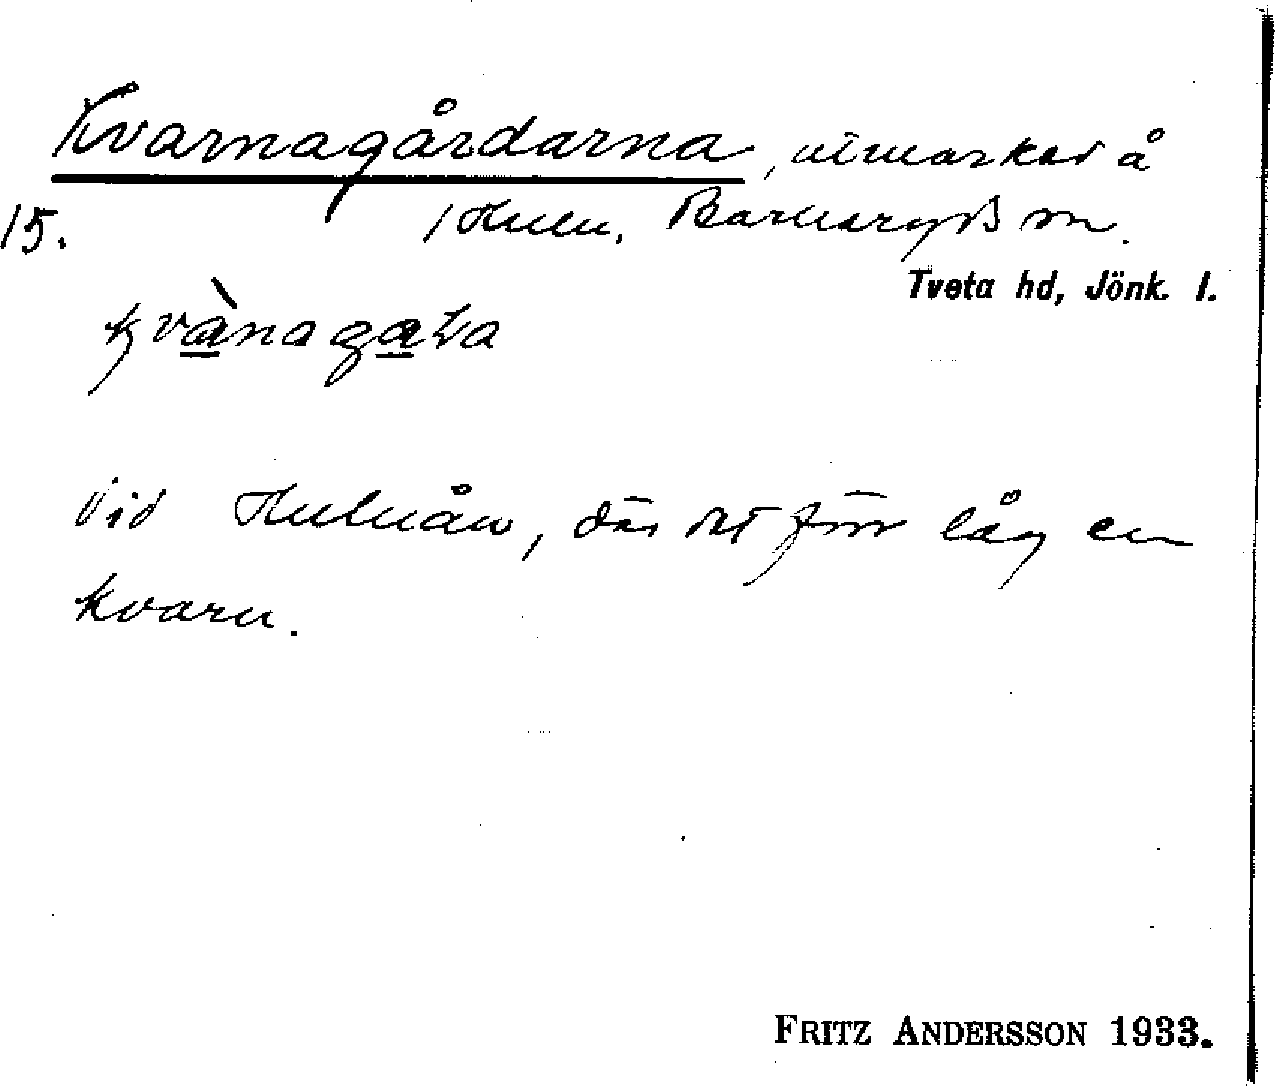 Kvarnagårdarna, utmarker å
15. 1 Hulu, Barkeryds sn.
Tveta hd, Jönk. l.
Vid Huluån, där det förr låg en
kvarn.
FRITZ ANDERSSON 1933.